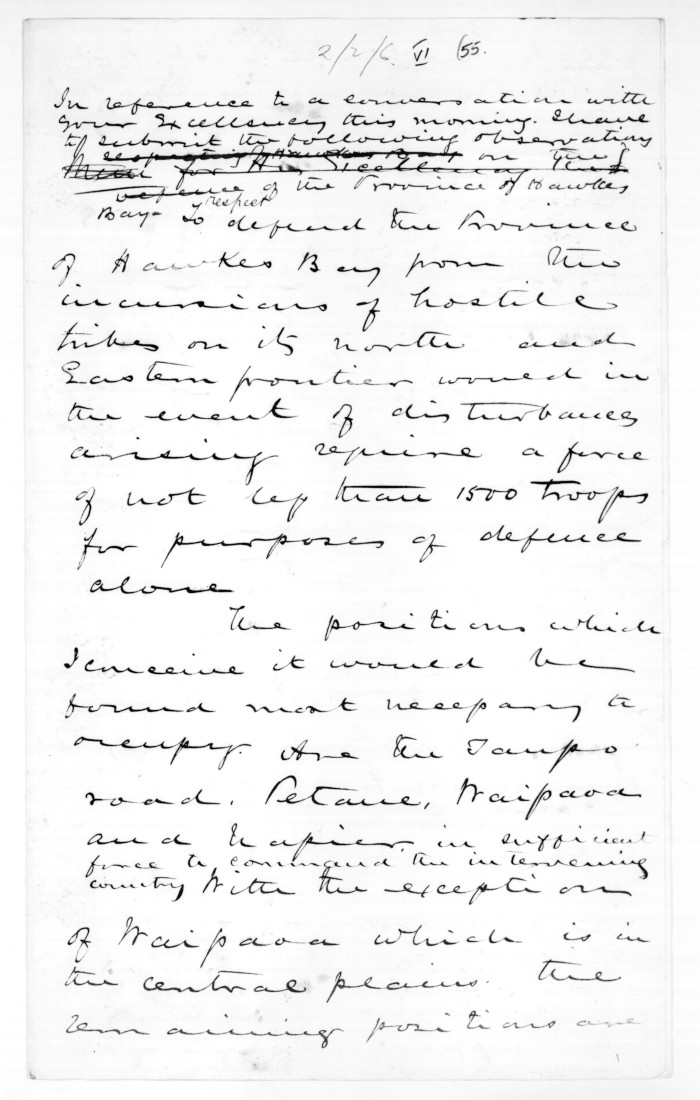 2/2/6. VI (55.
In reference to a conversation with
your Excellency this morning. I have
to submit the following observations
respecting Hawkes Bay on the
for His Excellency the
defence of the Province of Hawkes
Bay - To respect
defend the Province
of Hawkes Bay from the
incursions of hostile
tribes on its north and
Eastern frontier would in
the event of disturbances
arising require a force
of not less than 1500 troops
for purposes of defence
alone
The positions which
I conceive it would be
found most necessary to
occupy. Are the Taupo
road. Petane, Waipawa
and Napier, in sufficient
force to command the intervening
country With the exception
of Waipawa which is in
the central plains. the
remaining positions are